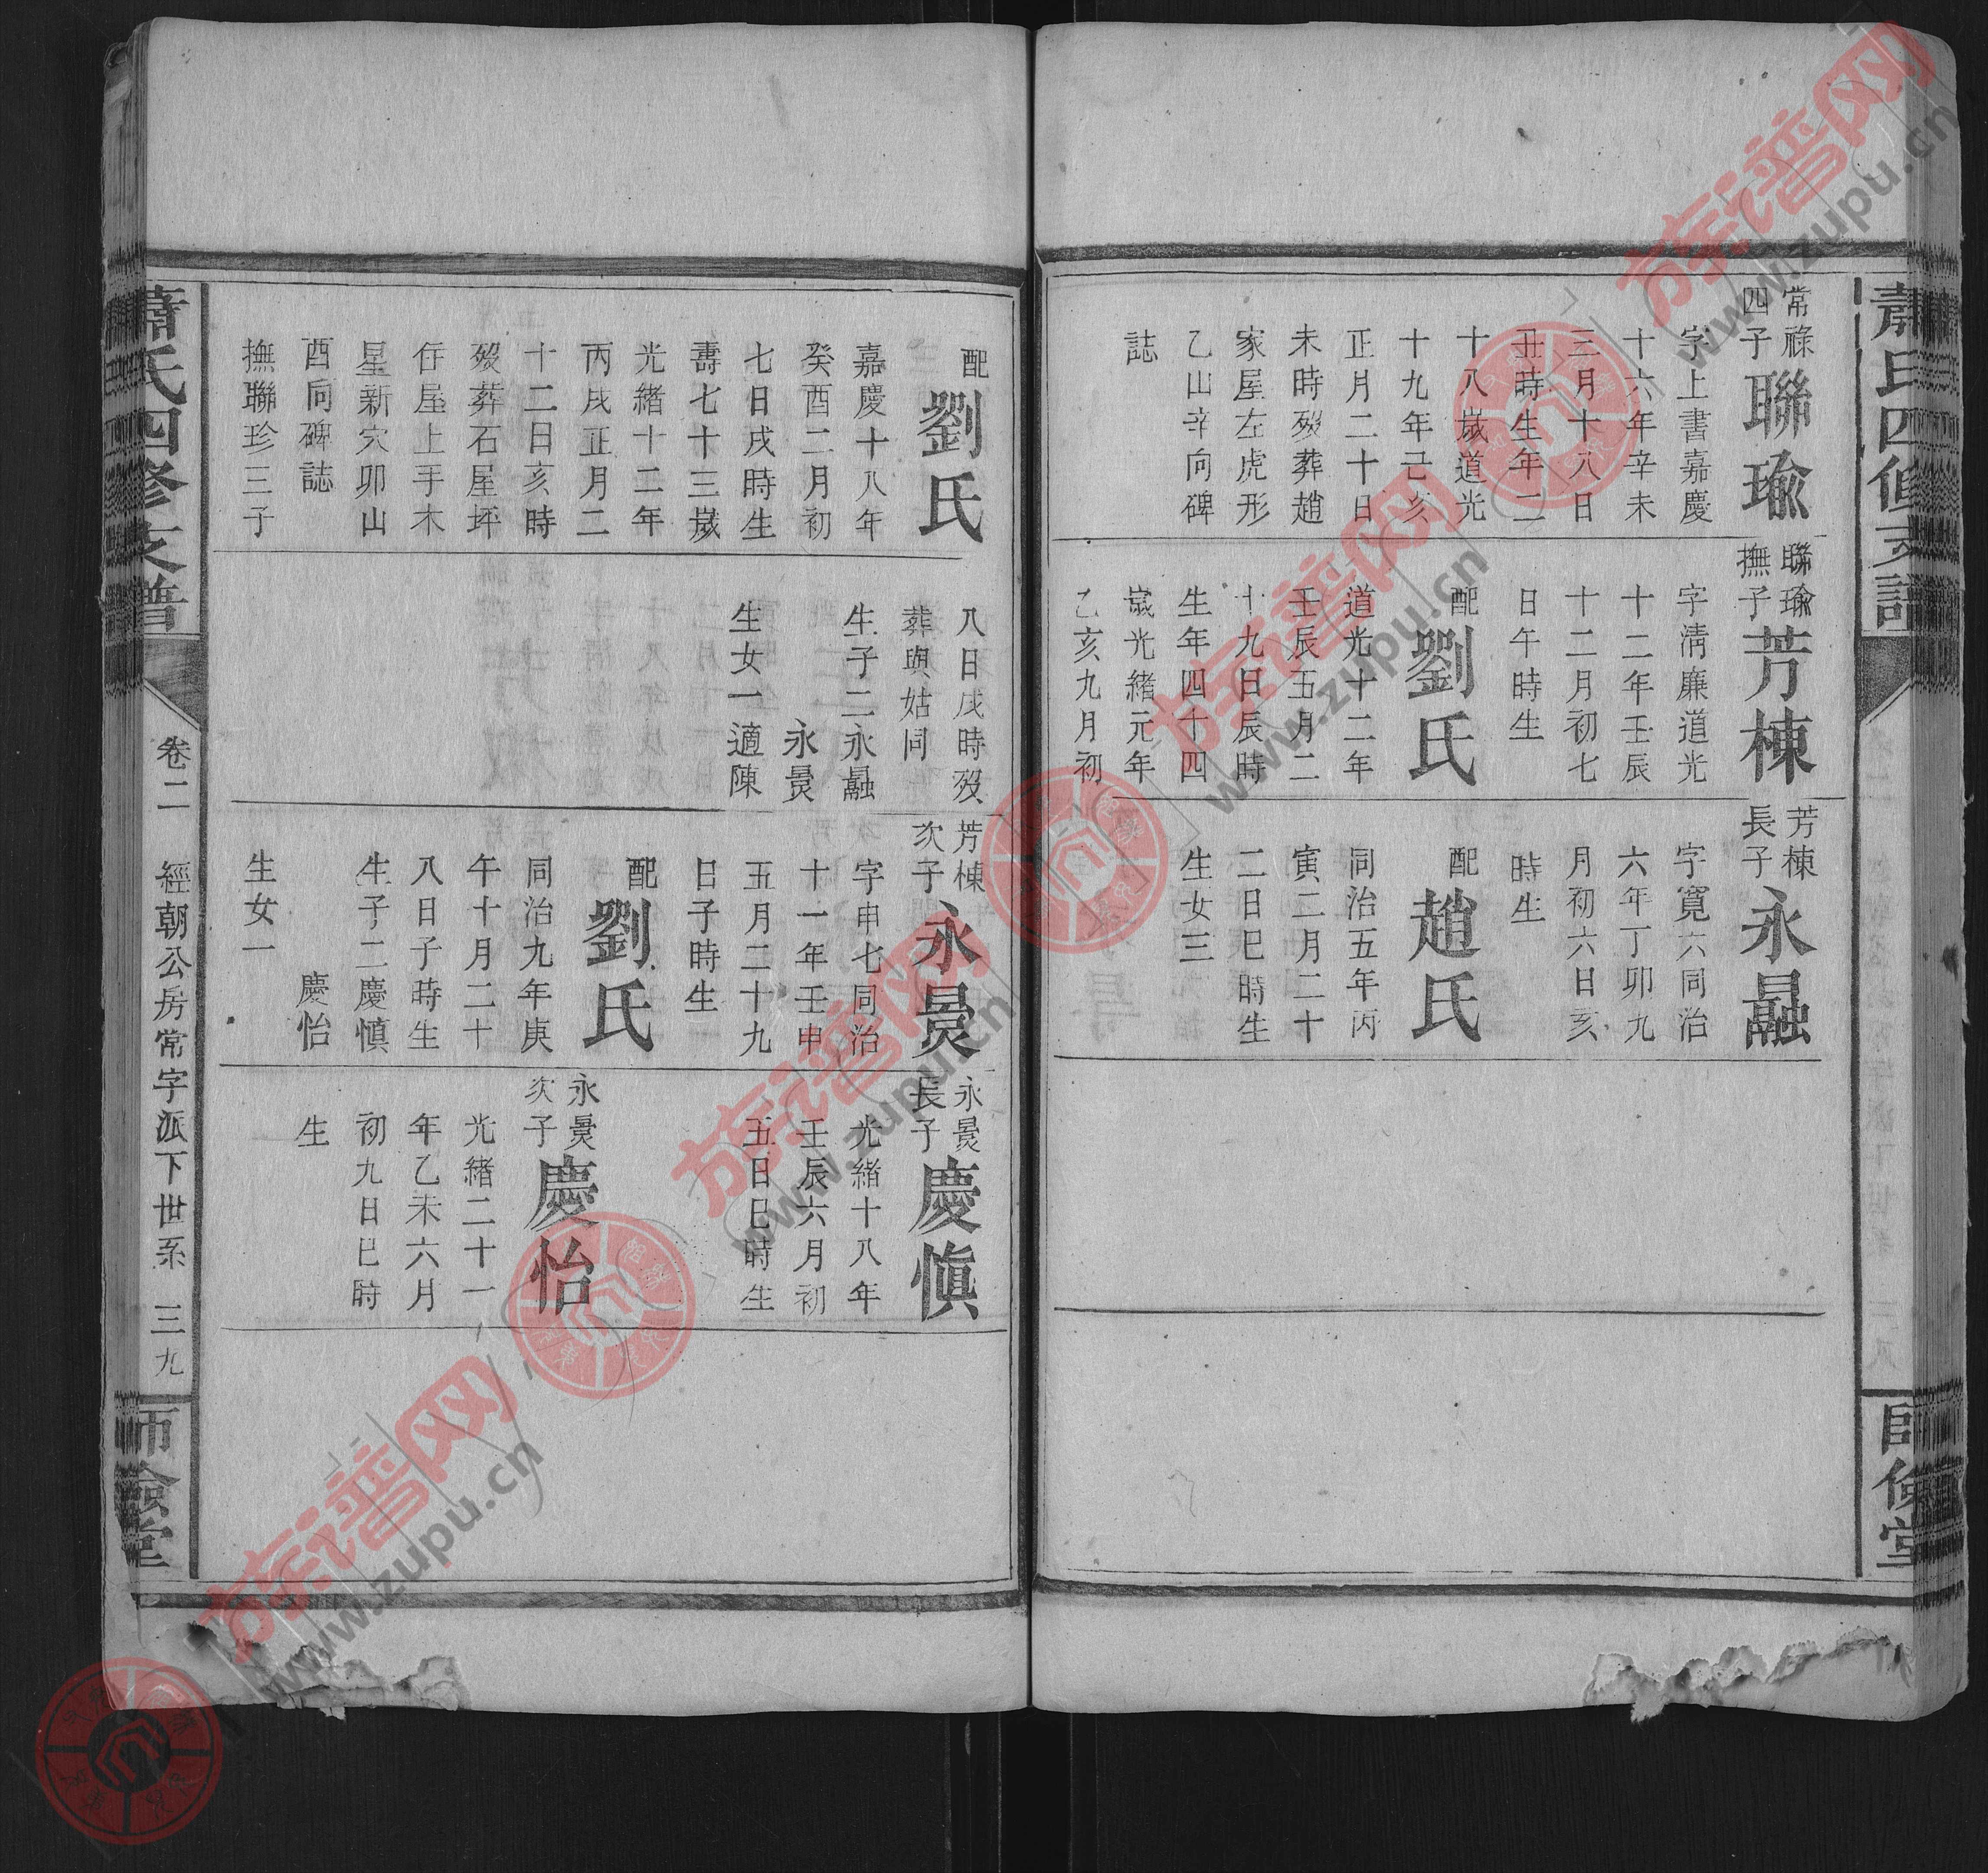 蕭氏四修支譜
師儉堂
常祿
四子
聯瑜
字上書嘉慶
十六年辛未
三月十八日
丑時生年二
十八嵗道光
十九年己亥
正月二十日
未時歿葬趙
家屋左虎形
乙山辛向碑
誌
聯瑜
撫子
芳棟
字淸廉道光
十二年壬辰
十二月初七
日午時生
配
劉氏
道光十二年
壬辰五月二
十九日辰時
生年四十四
嵗光緒元年
乙亥九月初
芳棟
長子
永朂
字寬六同治
六年丁卯九
月初六日亥
時生
配
趙氏
同治五年丙
寅二月二十
二日巳時生
生女三
配
劉氏
嘉慶十八年
癸酉二月初
七日戌時生
壽七十三嵗
光緒十二年
丙戌正月二
十二日亥時
歿葬石屋坪
仔屋上手木
星新穴卯山
酉向碑誌
撫聯珍三子
八日戌時歿
葬與姑同
生子二永朂
永炅
生女一適陳
芳棟
次子
永炅
字申七同治
十一年壬申
五月二十九
日子時生
配
劉氏
同治九年庚
午十月二十
八日子時生
生子二慶愼
慶怡
生女一
永炅
長子
慶愼
光緒十八年
壬辰六月初
五日巳時生
永炅
次子
慶怡
光緒二十一
年乙未六月
初九日巳時
生
蕭氏四修支譜
卷二
經朝公房常字派下世系
三九
師儉堂
族譜网
www.zupu.cn